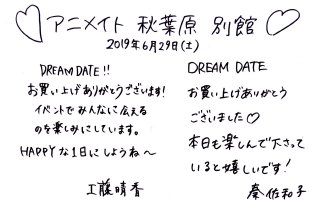 アニメイト 秋葉原 別館
2019年6月29日(土)
DREAM DATE!!
お買い上げありがとうございます!
イベントでみんなに会える
のを楽しみにしています。
HAPPYな1日にしようね〜
工藤晴香
DREAM DATE
お買い上げありがとう
ございました♡
本日も楽しんで下さって
いると嬉しいです!
秦佐和子